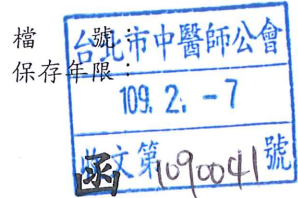 檔　　號：
保存年限：
台北市中醫師公會
109. 2. -7
收文第1090041號
函